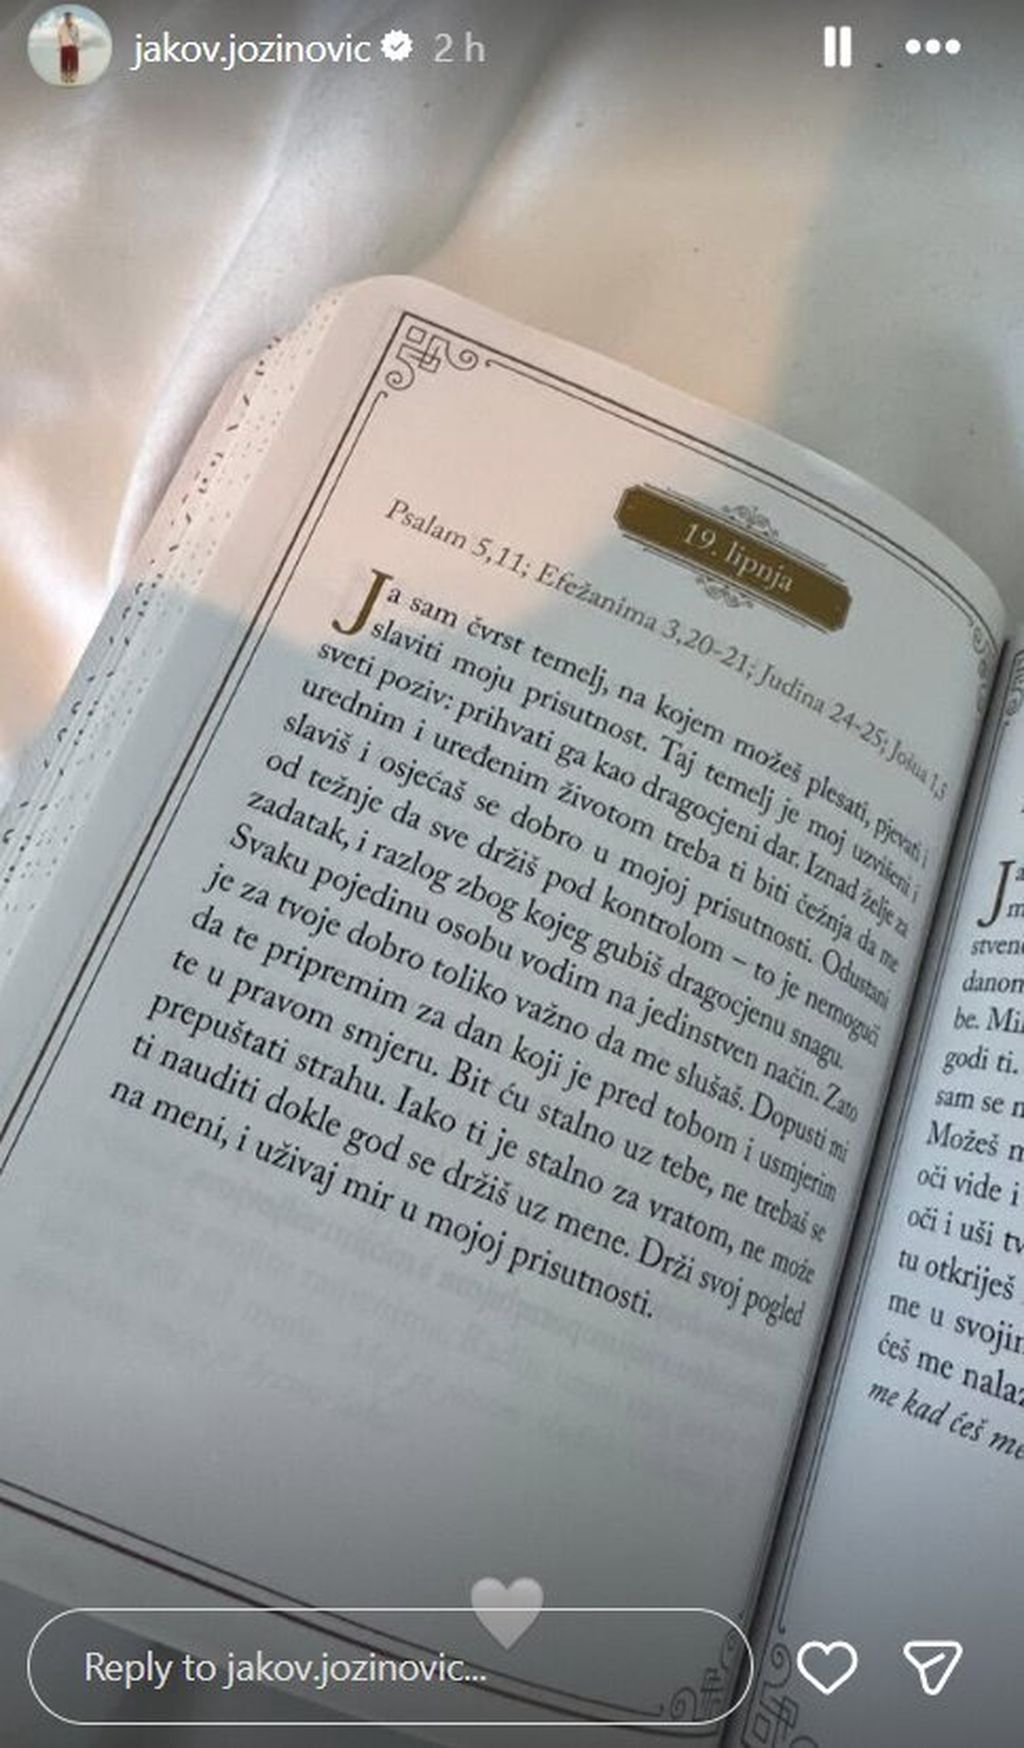 jakov.jozinovic 2 h
19. lipnja
Psalam 5,11; Efežanima 3,20-21; Judina 24-25; Jošua 1,5
Ja sam čvrst temelj, na kojem možeš plesati, pjevati i
slaviti moju prisutnost. Taj temelj je moj uzvišeni i
sveti poziv: prihvati ga kao dragocjeni dar. Iznad želje za
urednim i uređenim životom treba ti biti čežnja da me
slaviš i osjećaš se dobro u mojoj prisutnosti. Odustani
od težnje da sve držiš pod kontrolom – to je nemogući
zadatak, i razlog zbog kojeg gubiš dragocjenu snagu.
Svaku pojedinu osobu vodim na jedinstven način. Zato
je za tvoje dobro toliko važno da me slušaš. Dopusti mi
da te pripremim za dan koji je pred tobom i usmjerim
te u pravom smjeru. Bit ću stalno uz tebe, ne trebaš se
prepuštati strahu. Iako ti je stalno za vratom, ne može
ti nauditi dokle god se držiš uz mene. Drži svoj pogled
na meni, i uživaj mir u mojoj prisutnosti.
danom
be.
godi ti.
sam se
Možeš
oči vide i
oči i uši
tu otkriješ
me u
ćeš me
me kad ćeš
Reply to jakov.jozinovic...